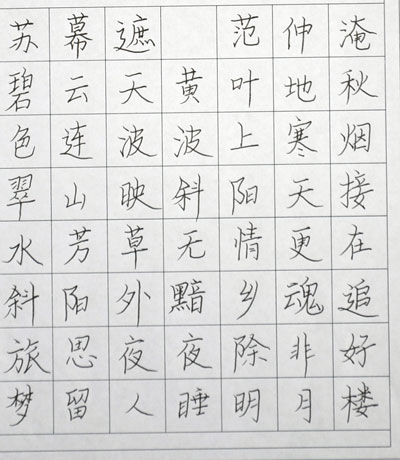 苏幕遮 范仲淹
碧云天黄叶地秋
色连波波上寒烟
翠山映斜阳天接
水芳草无情更在
斜阳外黯乡魂追
旅思夜夜除非好
梦留人睡明月楼